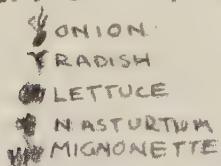 ONION
RADISH
LETTUCE
NASTURTIUM
MIGNONETTE